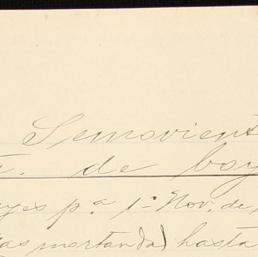 Semovient
de boy
yes p.a 1º Nov. de
as mortandad hasta